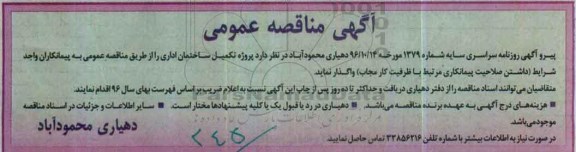 آگهی مناقصه عمومی
پیرو آگهی روزنامه سراسری سایه شماره ۱۳۷۹ مورخه ۹۶/۱۰/۱۴ دهیاری محمودآباد در نظر دارد پروژه تکمیل ساختمان اداری را از طریق مناقصه عمومی به پیمانکاران واجد
شرایط (داشتن صلاحیت پیمانکاری مرتبط با ظرفیت کار مجاب) واگذار نماید.
متقاضیان می توانند اسناد مناقصه را از دفتر دهیاری دریافت و حداکثر تا ده روز پس از چاپ این آگهی نسبت به اعلام ضریب بر اساس فهرست بهای سال ۹۶ اقدام نمایند.
■ هزینه های درج آگهی به عهده برنده مناقصه می باشد. ■ دهیاری در رد یا قبول یک یا کلیه پیشنهادها مختار است. ■ سایر اطلاعات و جزئیات در اسناد مناقصه
موجود می باشد.
در صورت نیاز به اطلاعات بیشتر با شماره تلفن ۳۳۸۵۶۳۱۶ تماس حاصل نمایید.
دهیاری محمودآباد
۲۴۵